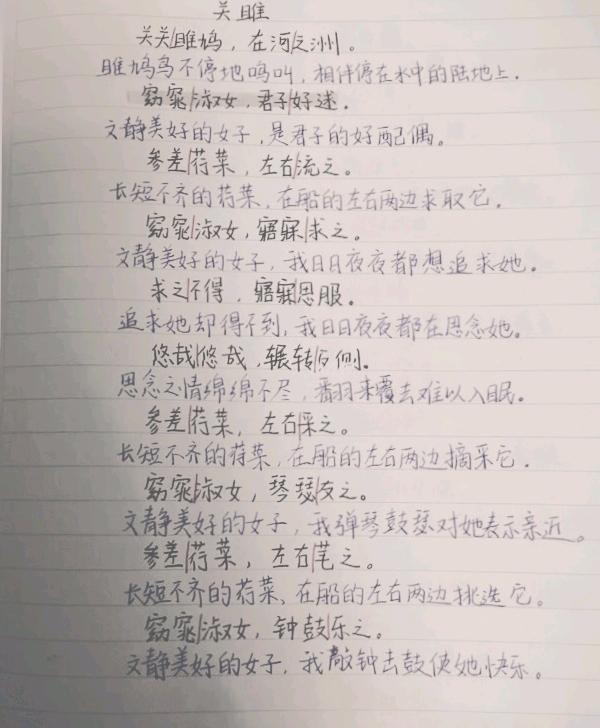 关雎
关关|雎鸠，在河|之洲。
雎鸠鸟不停地鸣叫，相伴停在水中的陆地上。
窈窕|淑女，君子|好逑。
文静美好的女子，是君子的好配偶。
参差|荇菜，左右|流之。
长短不齐的荇菜，在船的左右两边求取它。
窈窕|淑女，寤寐|求之。
文静美好的女子，我日日夜夜都想追求她。
求之|不得，寤寐|思服。
追求她却得不到，我日日夜夜都在思念她。
悠哉|悠哉，辗转|反侧。
思念之情绵绵不尽，翻来覆去难以入眠。
参差|荇菜，左右|采之。
长短不齐的荇菜，在船的左右两边摘采它。
窈窕|淑女，琴瑟|友之。
文静美好的女子，我弹琴鼓瑟对她表示亲近。
参差|荇菜，左右|芼之。
长短不齐的荇菜、在船的左右两边挑选它。
窈窕|淑女，钟鼓|乐之。
文静美好的女子，我敲钟击鼓使她快乐。